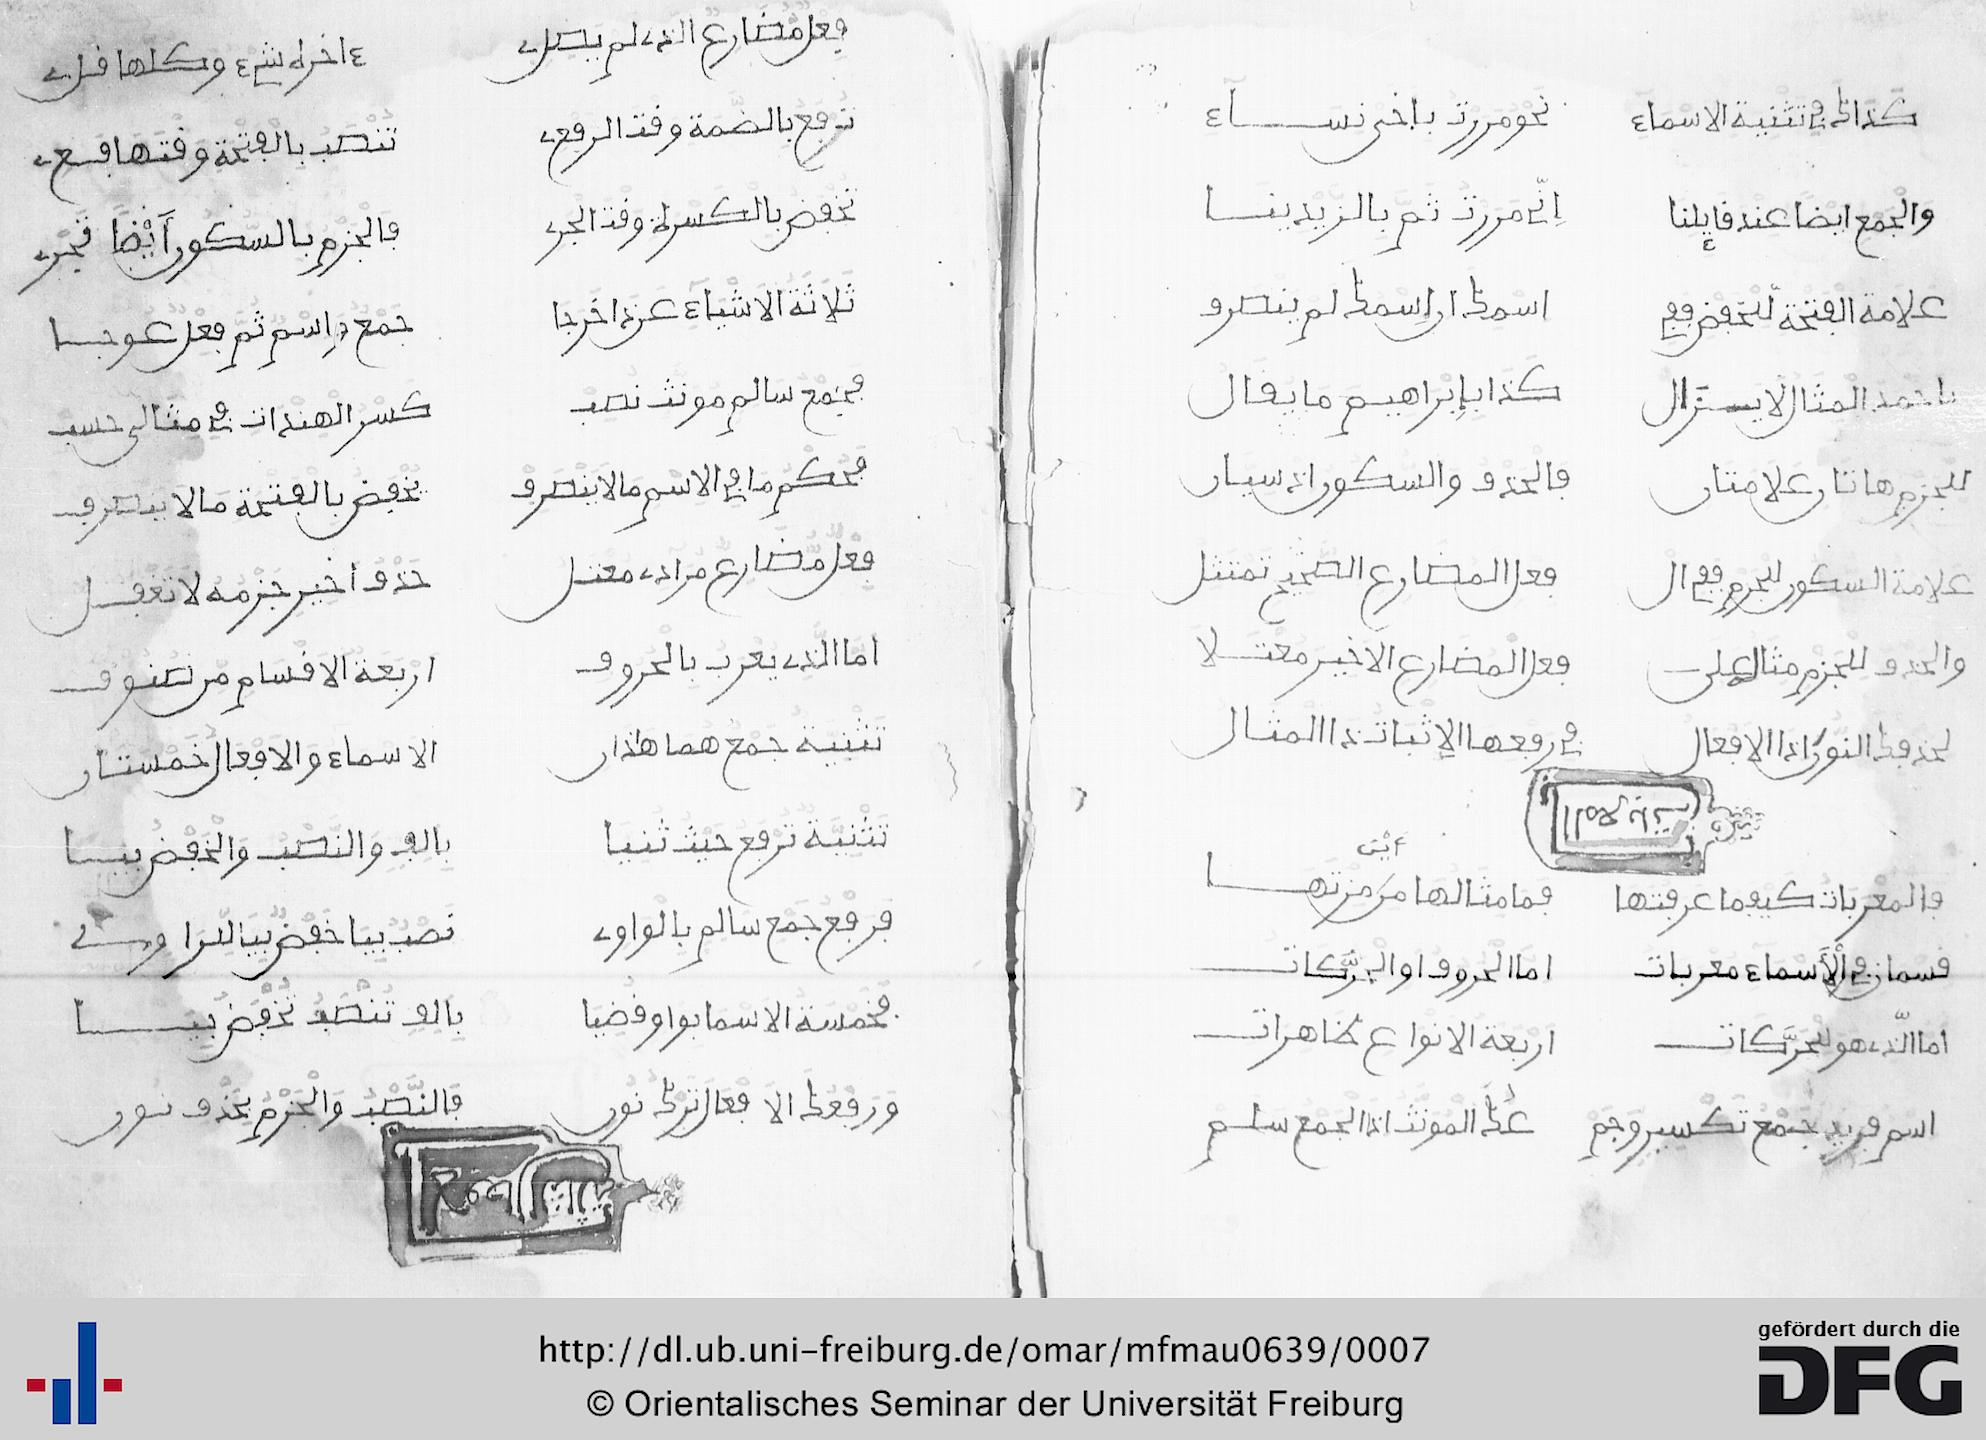 كذاك في تثنية الاسماء نحو مررت باخي نساء
والجمع ايضا عند قايلنا اني مررت ثم بالزيدينا
علامة الفتحة للخفض ففي اسمك ان اسمك لم ينصرف
باحمد المثال لا يــزال كذا بإبراهيم ما يقال
للجزم هاتان علامتان فالحذف والسكون اذ سيان
علامة السكون للجزم ففي ال فعل المضارع الصحيح تمتثل
والحذف للجزم مثال على فعل المضارع الاخير معتلا
لحذفك النون كذا الافعال في رفعها الإثبات ذا المثال
فالمعربات كيف ما عرفتها فما مثالها من مزتها
قسمان في الأسماء معربات اما الحروف او الحركات
اما الذي هو للحركات اربعة الانواع ظاهرات
اسم فريد جمع تكسير وجم علك المونث اذا الجمع سلم
فعل مضارع الذي لم يصل ءاخره شيء وكلها قل
ترفع بالضمة وقت الرفع تنصب بالفتحة وقتها فع
تخفض بالكسرة وقت الجر فالجزم بالسكون أيضا فجر
ثلاثة الاشياء عن ذا خرجا جمع واسم ثم فعل عوجا
فجمع سالم مونث نصب كسر الهندات في مثالي حسب
فحكم ما في الاسم ما لا ينصرف تخفض بالفتحة ما لا ينصرف
فعل مضارع مرادي معتل حذف اخير جزمه لا تغفل
اما الذي يعرب بالحروف اربعة الاقسام من صنوف
تثنية جمع هما هذان الاسماء والافعال خمستان
تثنية ترفع حيث ثنيا بالف والنصب والخفض بيا
فرفع جمع سالم بالواو نصب بيا خفض بيا للراو
فخمسة الاسما بواو قضيا بالف تنصب تخفض بيا
ورفعك الافعال ترك نون فالنصب والجزم بحذف نون
http://dl.ub.uni-freiburg.de/omar/mfmau0639/0007
© Orientalisches Seminar der Universität Freiburg
gefördert durch die
DFG